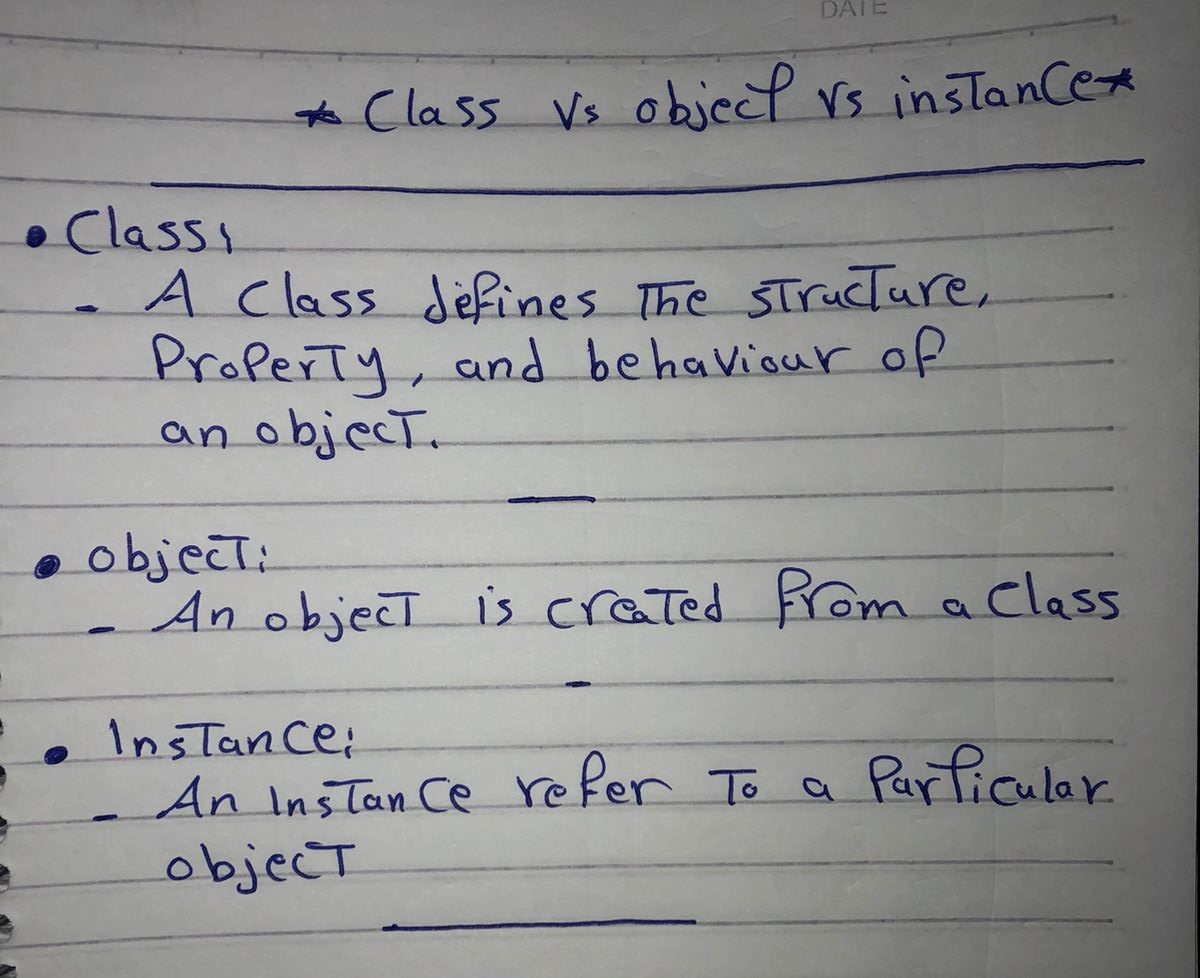 DATE
* Class Vs object Vs instance *
• Class:
- A Class defines The structure,
Property, and behaviour of
an object.
• object:
- An object is created from a Class
• Instance:
- An Instance refer To a Particular
object